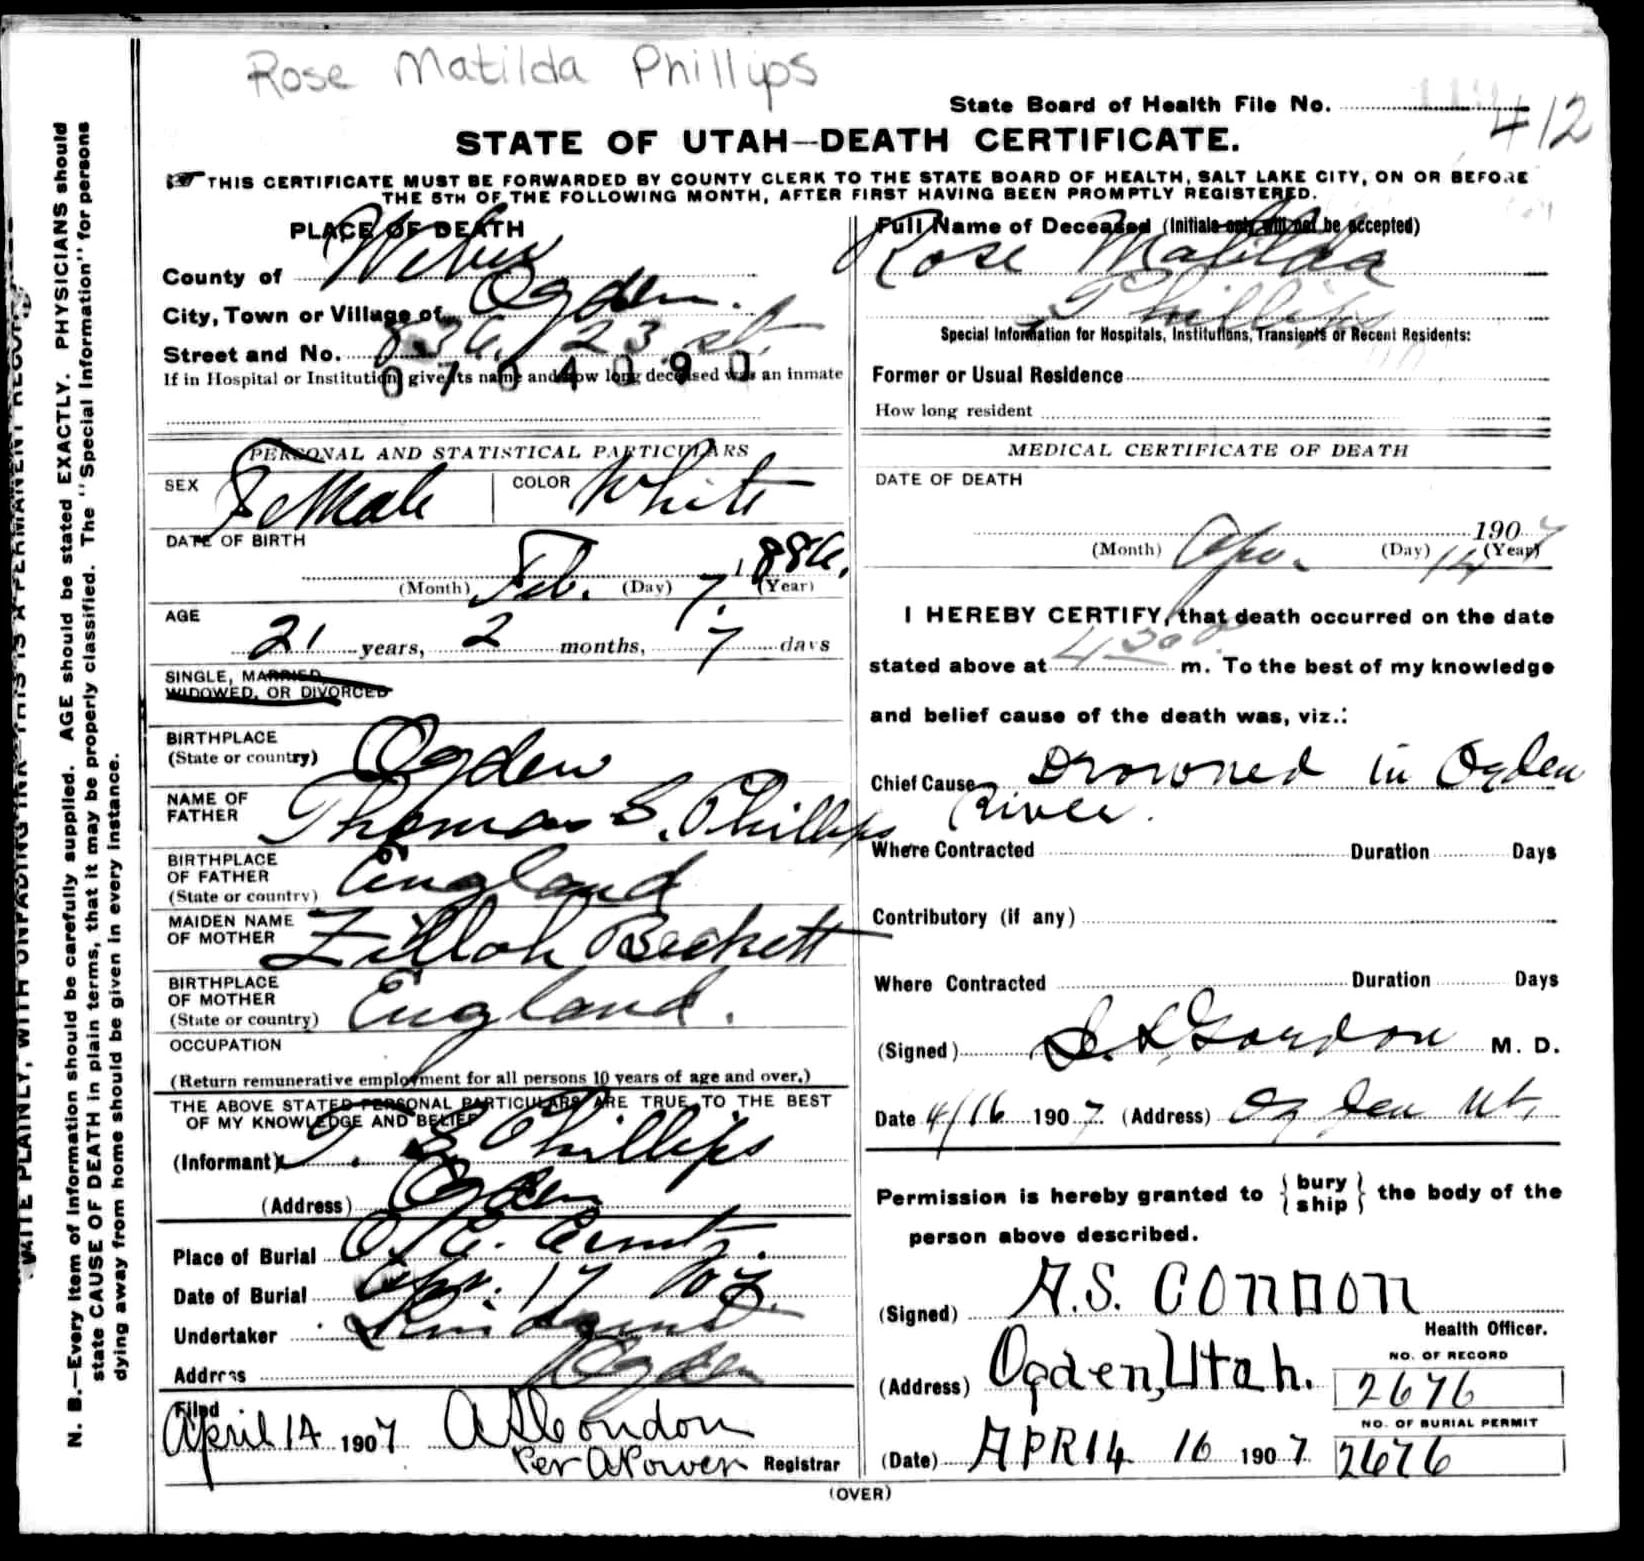 Rose Matilda Phillips
State Board of Health File No. 412
STATE OF UTAH—DEATH CERTIFICATE.
THIS CERTIFICATE MUST BE FORWARDED BY COUNTY CLERK TO THE STATE BOARD OF HEALTH, SALT LAKE CITY, ON OR BEFORE
THE 5TH OF THE FOLLOWING MONTH, AFTER FIRST HAVING BEEN PROMPTLY REGISTERED.
PLACE OF DEATH
County of Weber
City, Town or Village of Ogden.
Street and No. 836 / 23 st.
If in Hospital or Institution give its name and how long deceased was an inmate
0704090
PERSONAL AND STATISTICAL PARTICULARS
SEX Female COLOR White
DATE OF BIRTH
(Month) Feb. (Day) 7. 1886. (Year)
AGE
21 years, 2 months, 7 days
SINGLE, MARRIED,
WIDOWED, OR DIVORCED
BIRTHPLACE
(State or country) Ogden
NAME OF
FATHER Thomas S. Phillips
BIRTHPLACE
OF FATHER
(State or country) England
MAIDEN NAME
OF MOTHER Zillah Beckett
BIRTHPLACE
OF MOTHER
(State or country) England.
OCCUPATION
(Return remunerative employment for all persons 10 years of age and over.)
THE ABOVE STATED PERSONAL PARTICULARS ARE TRUE TO THE BEST
OF MY KNOWLEDGE AND BELIEF
(Informant) T. S. Phillips
(Address) Ogden
Place of Burial
Date of Burial Apr. 17 07
Undertaker Lindquist
Address Ogden
Filed
April 14 1907 A S Condon
Per A Power Registrar
Full Name of Deceased (Initials only will not be accepted)
Rose Matilda
Phillips
Special Information for Hospitals, Institutions, Transients or Recent Residents:
Former or Usual Residence
How long resident
MEDICAL CERTIFICATE OF DEATH
DATE OF DEATH
1907
(Month) Apr. (Day) 14 (Year)
I HEREBY CERTIFY, that death occurred on the date
stated above at 4 30 P m. To the best of my knowledge
and belief cause of the death was, viz.:
Chief Cause Drowned in Ogden
River.
Where Contracted Duration Days
Contributory (if any)
Where Contracted Duration Days
(Signed) Gordon M. D.
Date 4/16 1907. (Address) Ogden Ut.
Permission is hereby granted to {bury ship} the body of the
person above described.
(Signed) A.S. CONDON
Health Officer.
(Address) Ogden, Utah.
NO. OF RECORD
2676
NO. OF BURIAL PERMIT
2676
(Date) APR 14 16 1907.
(OVER)
N. B.—Every item of information should be carefully supplied. AGE should be stated EXACTLY. PHYSICIANS should
state CAUSE OF DEATH in plain terms, that it may be properly classified. The "Special Information" for persons
dying away from home should be given in every instance.
WRITE PLAINLY, WITH UNFADING INK—THIS IS A PERMANENT RECORD